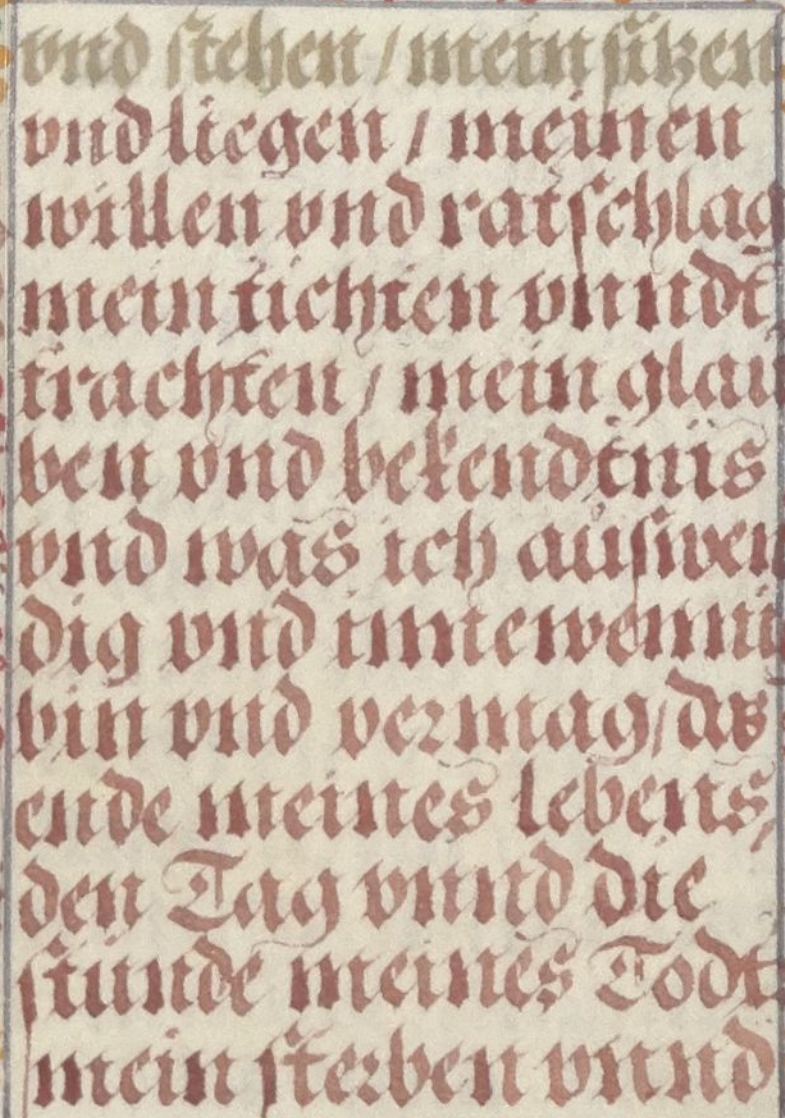 vnd stehen / mein sitzen
vnd liegen / meinen
willen vnd ratschlag
mein tichten vnndt
trachten / mein glau
ben vnd bekendtnis
vnd was ich auswen
dig vnd innewennig
bin vnd vermag / das
ende meines lebens,
den Tag vnnd die
stunde meines Todt
mein sterben vnnd